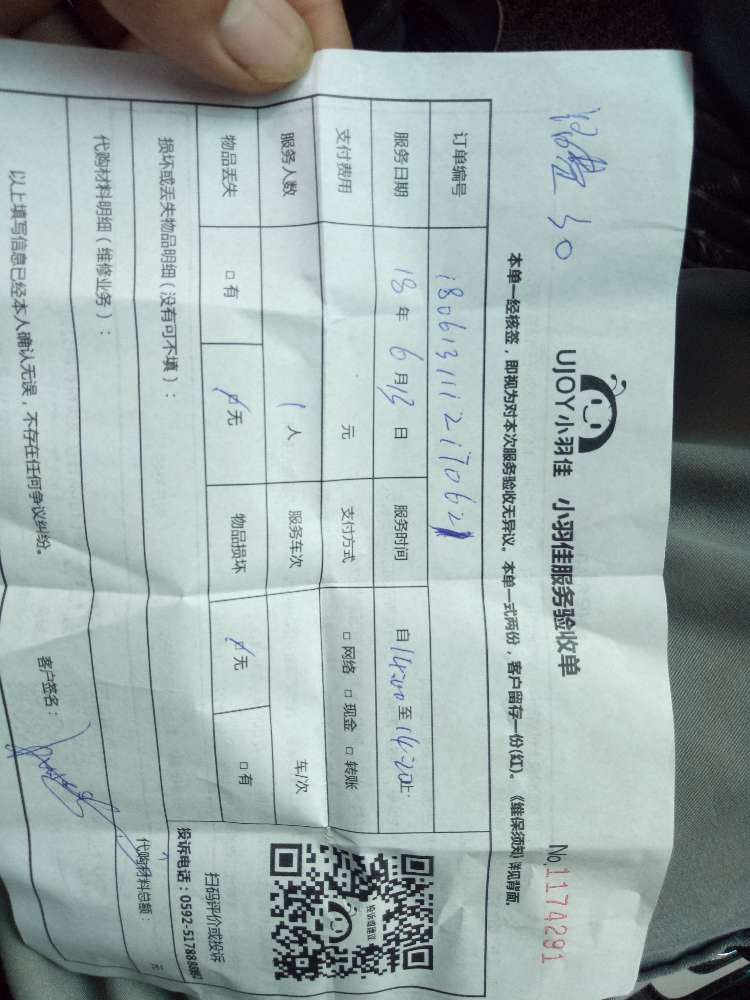 30
UJOY小羽佳 小羽佳服务验收单
No.1174291
本单一经核签，即视为对本次服务验收无异议。本单一式两份，客户留存一份(红)。《维保须知》详见背面。
订单编号 180613111217062
服务日期 18年6月13日 服务时间 自14:00至14:20止
支付费用 元 支付方式 □网络 □现金 □转账
服务人数 1人 服务车次 车/次
物品丢失 □有 □无 物品损坏 □无 □有
损坏或丢失物品明细(没有可不填)：
代购材料明细(维修业务)：
投诉建议
扫码评价或投诉
投诉电话：0592-5178888
代购材料总额： 元
以上填写信息已经本人确认无误，不存在任何争议纠纷。
客户签名：